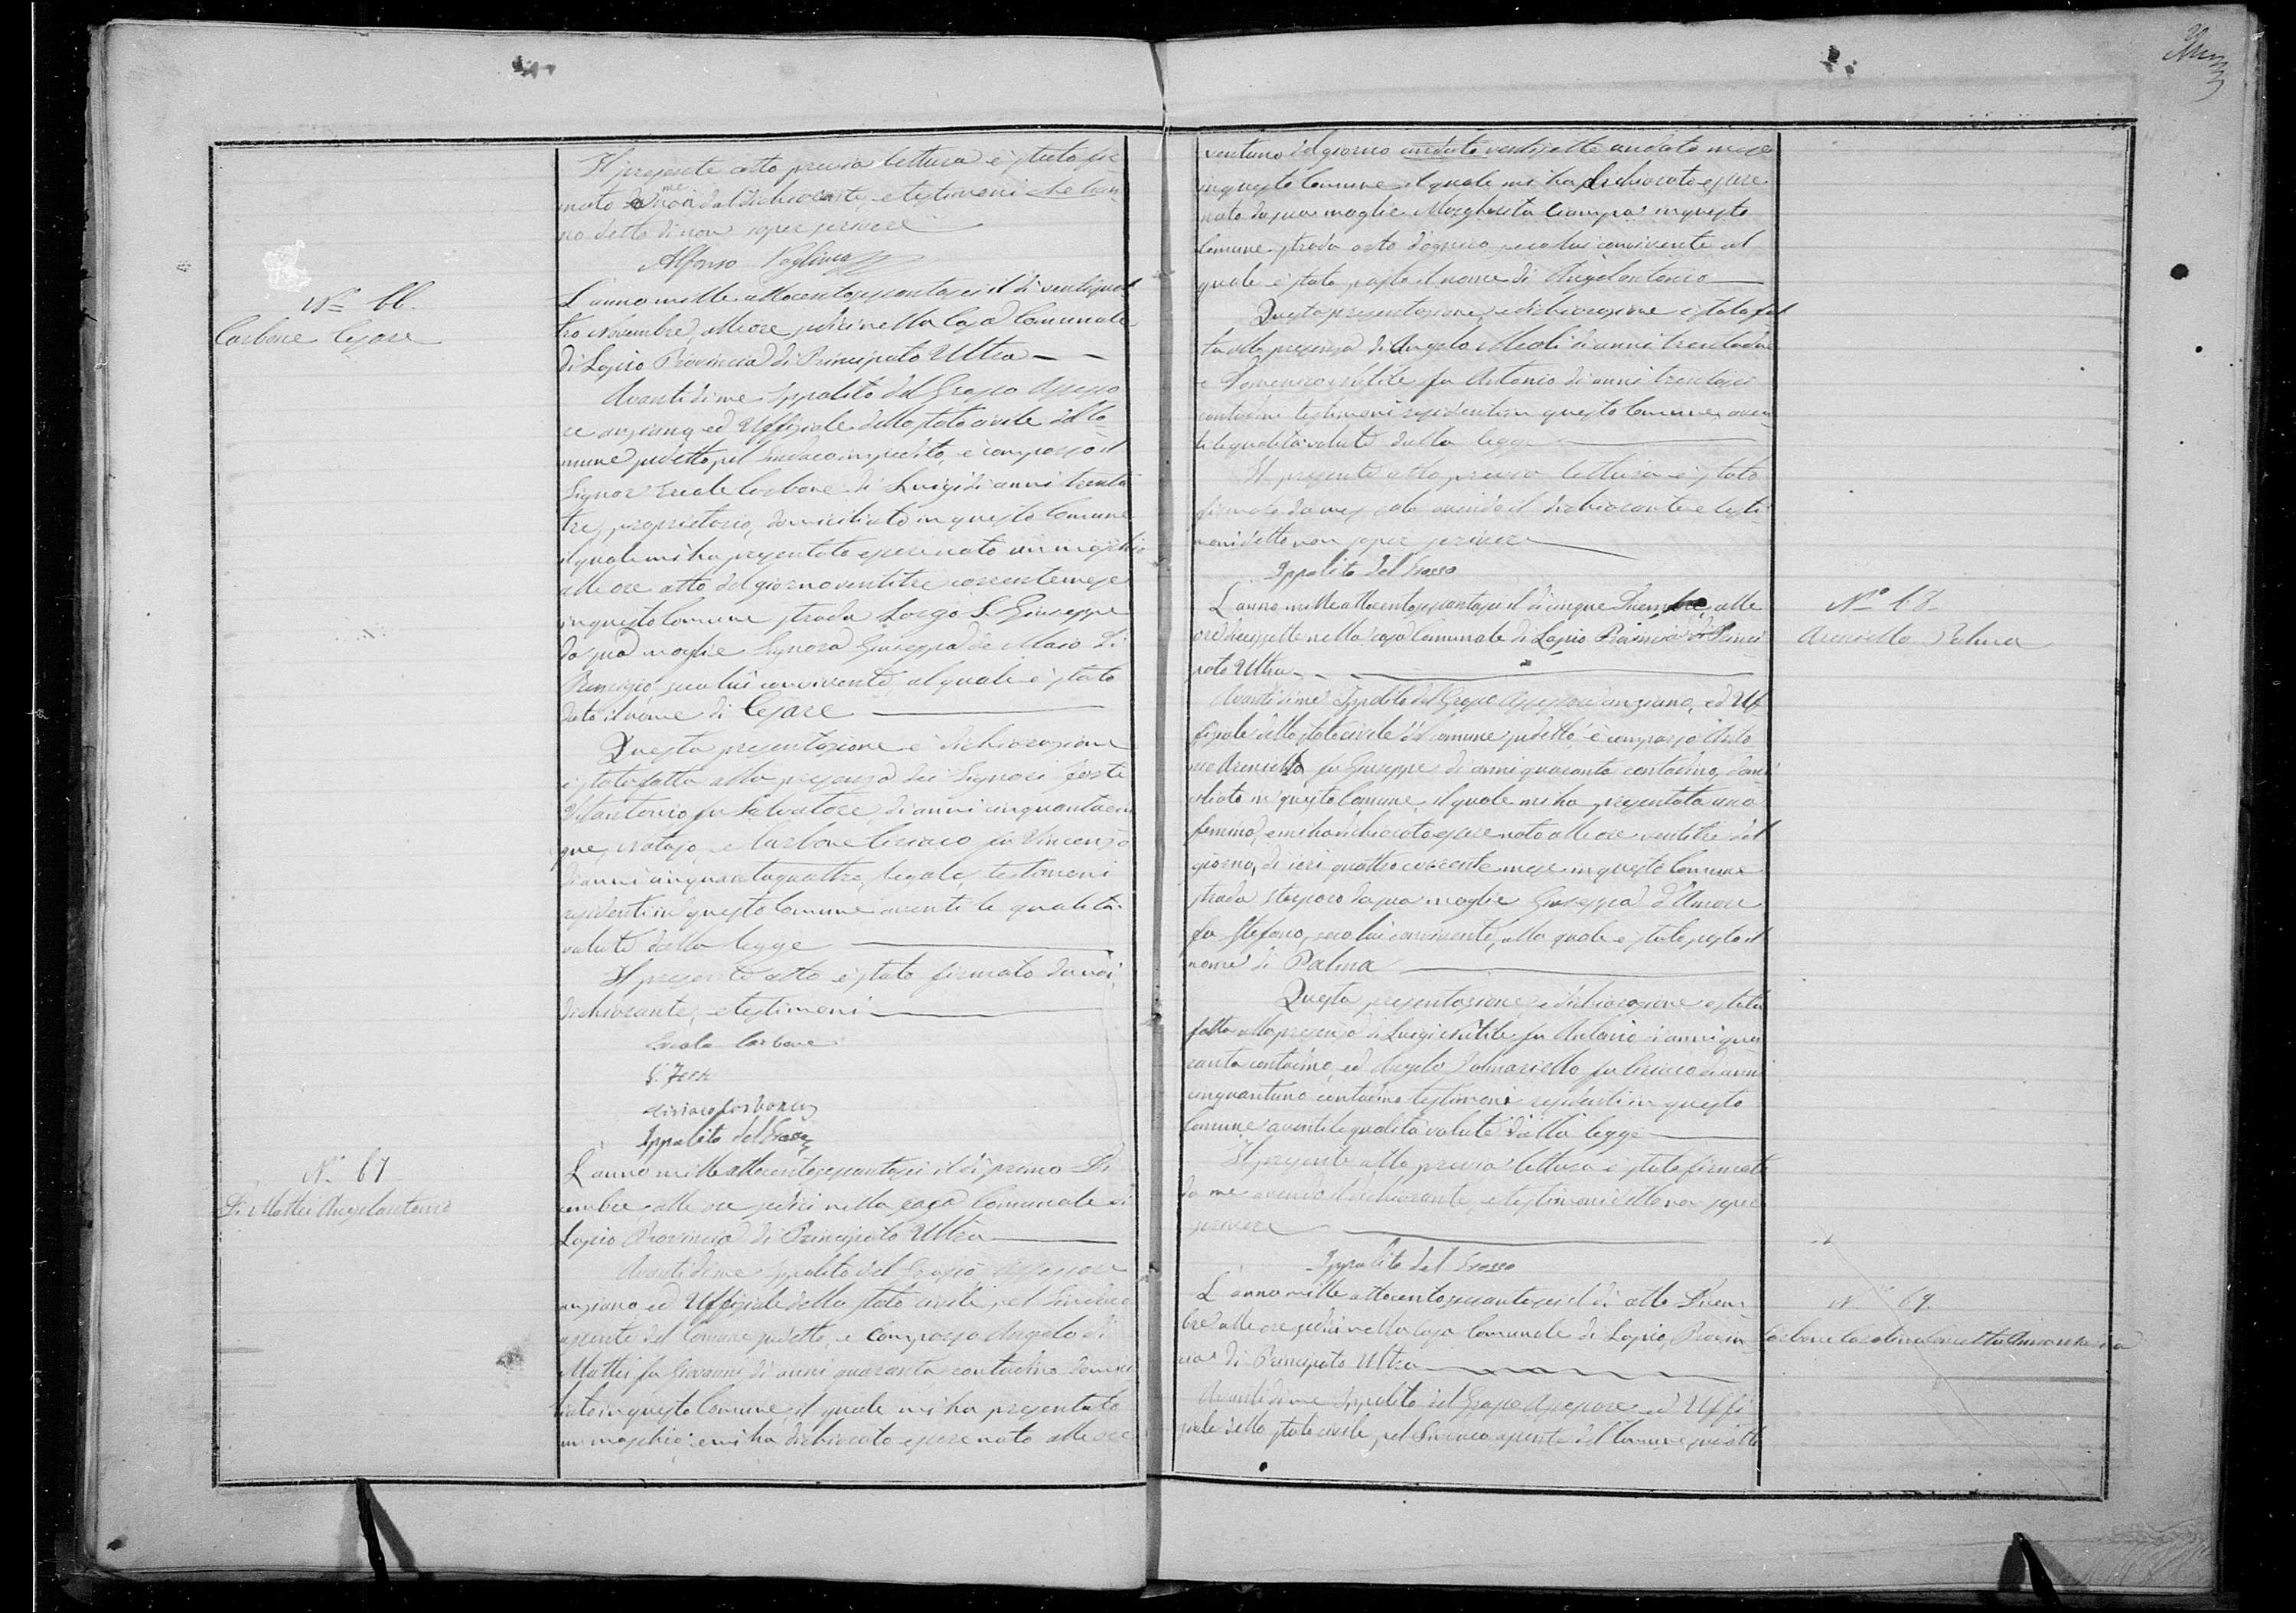 Il presente atto previa lettura è stato fir
mato da me non dal dichiarante, e testimoni che han
no detto di non saper scrivere
Alfonso
Nº 66.
Carbone Cesare
L'anno mille ottocentosessantasei il dì ventiquat
tro Novembre, alle ore sedici nella Casa Comunale
di Lapio Provincia di Principato Ultra
Avanti di me Ippolito del Grosso Assesso
re anziano, ed Uffiziale dello stato civile del Co
mune sudetto, pel Sindaco impedito, è comparso il
Signor Carbone di Luigi di anni trenta
tre, proprietario, domiciliato in questo Comune
il quale mi ha presentato essere nato un maschio
alle ore otto del giorno ventitre corrente mese
in questo Comune strada Largo S. Giuseppe
da sua moglie Signora Giuseppa de Maio di
Remigio seco lui convivente, al quale è stato
dato il nome di Cesare
Questa presentazione e dichiarazione
è stata fatta alla presenza dei Signori Forte
Vitantonio fu Salvatore, di anni cinquantacin
que, notajo, e Carbone Ciriaco fu Vincenzo
di anni cinquantaquattro, legale, testimoni
residenti in questo Comune aventi le qualità
volute dalla legge
Il presente atto è stato firmato da noi,
dichiarante, e testimoni
Carbone
Ciriaco Carbone
Ippolito del Grosso
Nº 67
Di Mattei Angelantonio
L'anno mille ottocentosessantasei il dì primo Di
cembre alle ore sedici nella casa Comunale di
Lapio Provincia di Principato Ultra
Avanti di me Ippolito del Grosso Assessore
anziano ed Uffiziale dello stato civile pel Sindaco
assente del Comune sudetto, è comparso Angelo di
Mattei fu Giovanni di anni quaranta contadino domici
liato in questo Comune, il quale mi ha presentato
un maschio, e mi ha dichiarato essere nato alle ore
ventuno del giorno andato ventisette andato mese
in questo Comune il quale mi ha dichiarato essere
nato da sua moglie Margherita Ciampa in questo
Comune strada seco lui convivente al
quale è stato posto il nome di Angelantonio
Questa presentazione, e dichiarazione è stata fat
ta alla presenza di Angelo Meoli di anni trentadue
e Domenico fu Antonio di anni trentasei
contadini testimoni residenti in questo Comune, aven
ti le qualità volute dalla legge
Il presente atto previa lettura è stato
firmato da me solo avendo il dichiarante e testi
moni detto non saper scrivere
Ippolito del Grosso
Nº 68
Arenella Palma
L'anno mille ottocentosessantasei il dì cinque Dicembre, alle
ore diecissette nella casa Comunale di Lapio Provincia di Princi
pato Ultra
Avanti di me Ippolito del Grosso Assessore anziano, ed Uf
fiziale dello stato civile del comune sudetto è comparso
Arenella fu Giuseppe di anni quaranta contadino, domi
ciliato in questo Comune, il quale mi ha presentata una
femina, e mi ha dichiarato essere nata alle ore ventitre del
giorno, di ieri quattro corrente mese in questo Comune
strada da sua moglie Giuseppa d'Amore
fu Stefano, seco lui convivente, alla quale è stato posto il
nome di Palma
Questa presentazione e dichiarazione è stata
fatta alla presenza di Luigi fu Antonio di anni qua
ranta contadino, ed Angelo Palmariello fu Ciriaco di anni
cinquantuno contadino testimoni residenti in questo
Comune aventi le qualità volute dalla legge
Il presente atto previa lettura è stato firmato
da me avendo il dichiarante, e testimoni detto non saper
scrivere
Ippolito del Grosso
Nº 69.
L'anno mille ottocentosessantasei il dì otto Dicem
bre alle ore sedici nella casa Comunale di Lapio, Provin
cia di Principato Ultra
Avanti di me Ippolito del Grosso Assessore ed Uffi
ziale dello stato civile, pel Sindaco assente del Comune sudetto